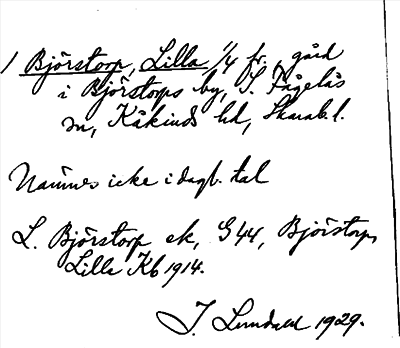 1 Björstorp, Lilla 1/4 fr., gård
i Björstorps by, S. Fågelås
sn, Kåkinds hd, Skarab.l.
Nämnes icke i dagl. tal
L. Björstorp ek, G44, Björstorp,
Lilla Kb 1914.
J. Lundahl 1929.